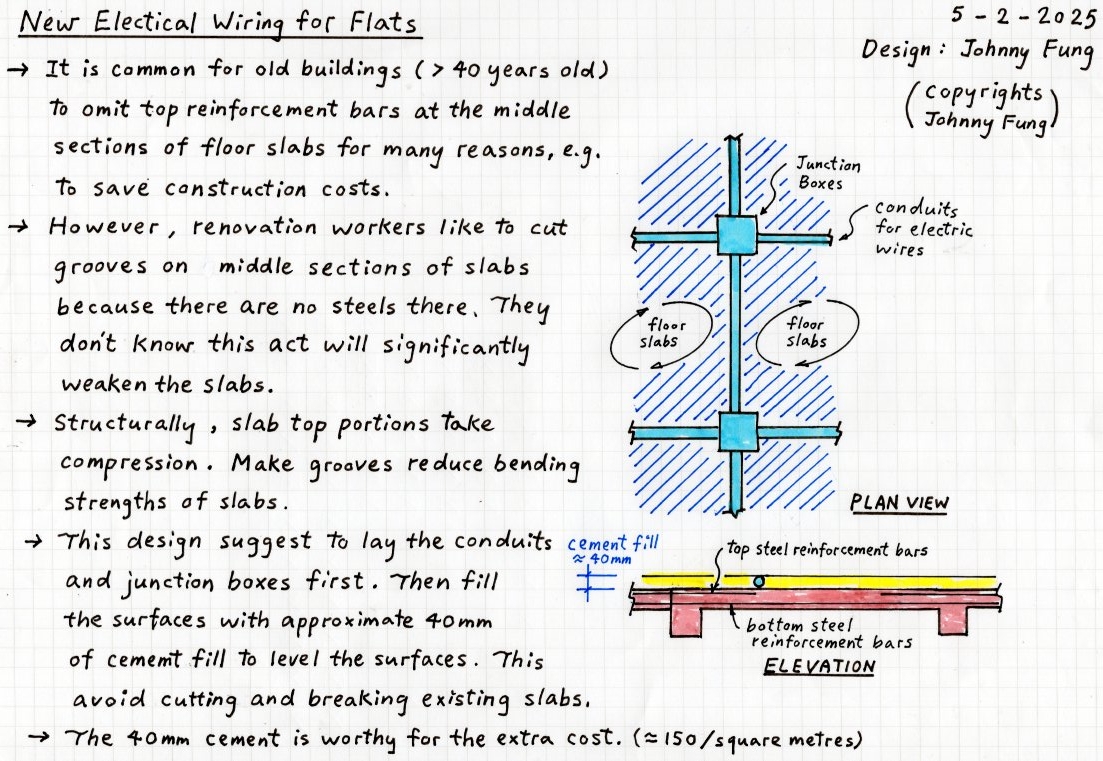 New Electical Wiring for Flats
5 - 2 - 2025
Design : Johnny Fung
(Copyrights
Johnny Fung)
→ It is common for old buildings ( > 40 years old)
to omit top reinforcement bars at the middle
sections of floor slabs for many reasons, e.g.
to save construction costs.
→ However, renovation workers like to cut
grooves on middle sections of slabs
because there are no steels there. They
don't know this act will significantly
weaken the slabs.
→ Structurally, slab top portions take
compression. Make grooves reduce bending
strengths of slabs.
→ This design suggest to lay the conduits
and junction boxes first. Then fill
the surfaces with approximate 40mm
of cement fill to level the surfaces. This
avoid cutting and breaking existing slabs.
→ The 40mm cement is worthy for the extra cost. (≈150/square metres)
Junction
Boxes
conduits
for electric
wires
floor
slabs
floor
slabs
PLAN VIEW
cement fill
≈ 40mm
top steel reinforcement bars
bottom steel
reinforcement bars
ELEVATION